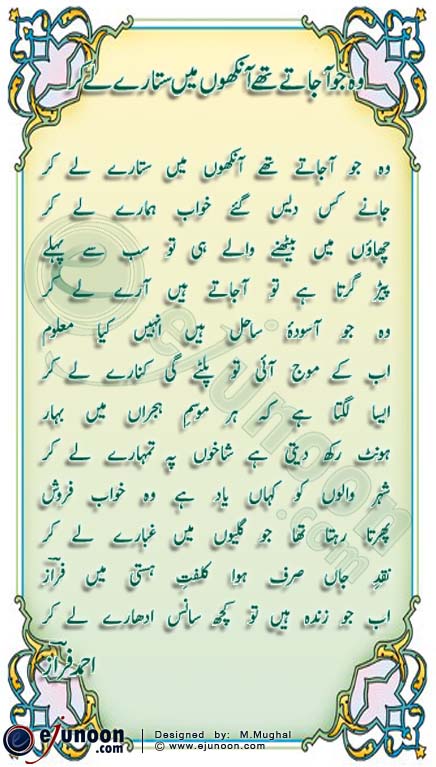 وہ جو آ جاتے تھے آنکھوں میں ستارے لے کر
وہ جو آجاتے تھے آنکھوں میں ستارے لے کر
جانے کس دیس گئے خواب ہمارے لے کر
چھاؤں میں بیٹھنے والے ہی تو سب سے پہلے
پیڑ گرتا ہے تو آجاتے ہیں آرے لے کر
وہ جو آسودۂ ساحل ہیں انہیں کیا معلوم
اب کے موج آئی تو پلٹے گی کنارے لے کر
ایسا لگتا ہے کہ ہر موسمِ ہجراں میں بہار
ہونٹ رکھ دیتی ہے شاخوں پہ تمہارے لے کر
شہر والوں کو کہاں یاد ہے وہ خواب فروش
پھرتا رہتا تھا جو گلیوں میں غبارے لے کر
نقدِ جاں صرف ہوا کلفتِ ہستی میں فرازؔ
اب جو زندہ ہیں تو کچھ سانس ادھارے لے کر
احمد فرازؔ
ejunoon.com
ejunoon
.com
Designed by: M.Mughal
© www.ejunoon.com